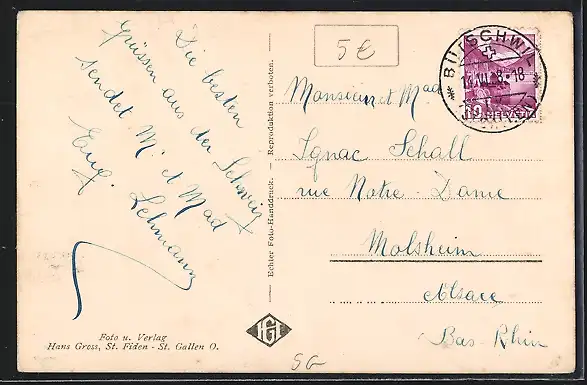 Die besten
Grüssen aus der Schweiz
sendet M. et Mad
Eug. Lehmann
Foto u. Verlag
Hans Gross, St. Fiden - St. Gallen O.
Echter Foto-Handdruck. — Reproduktion verboten.
HGt
SG
5 €
BÜTSCHWIL
18
HELVETIA
Monsieur et Mad
Ignac Schall
rue Notre-Dame
Molsheim
Alsace
Bas-Rhin